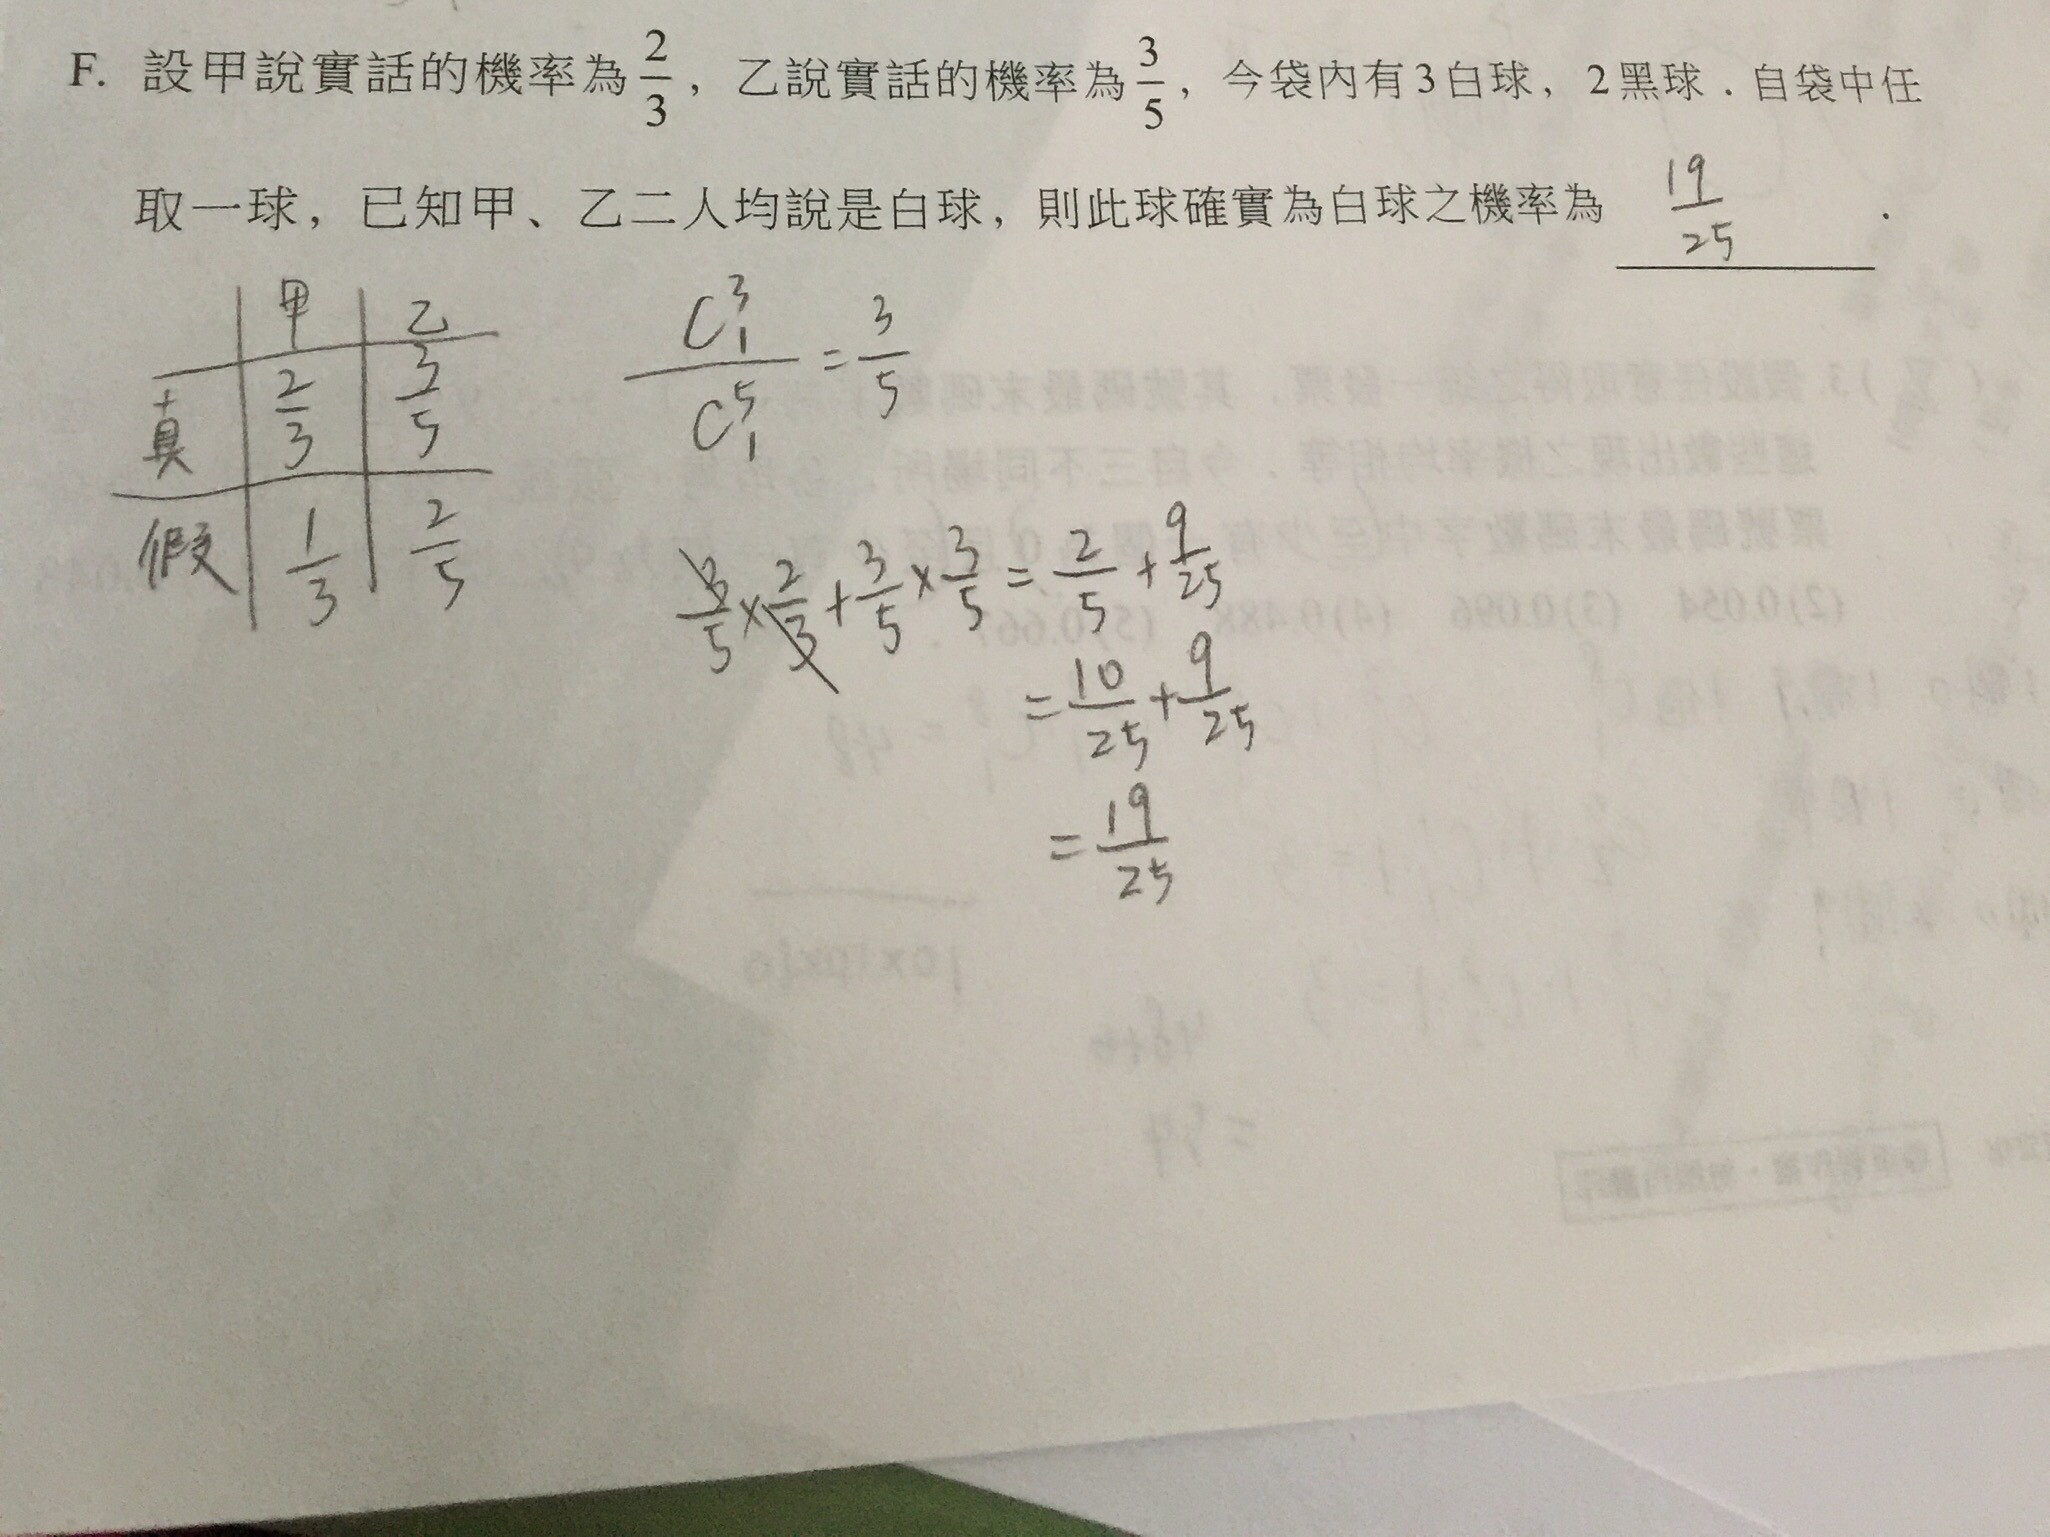 F. 設甲說實話的機率為 2/3，乙說實話的機率為 3/5，今袋內有3白球，2黑球．自袋中任
取一球，已知甲、乙二人均說是白球，則此球確實為白球之機率為 19/25 ．
甲 乙
真 2/3 3/5
假 1/3 2/5
C³₁/C⁵₁ = 3/5
3/5 × 2/3 + 3/5 × 3/5 = 2/5 + 9/25
= 10/25 + 9/25
= 19/25